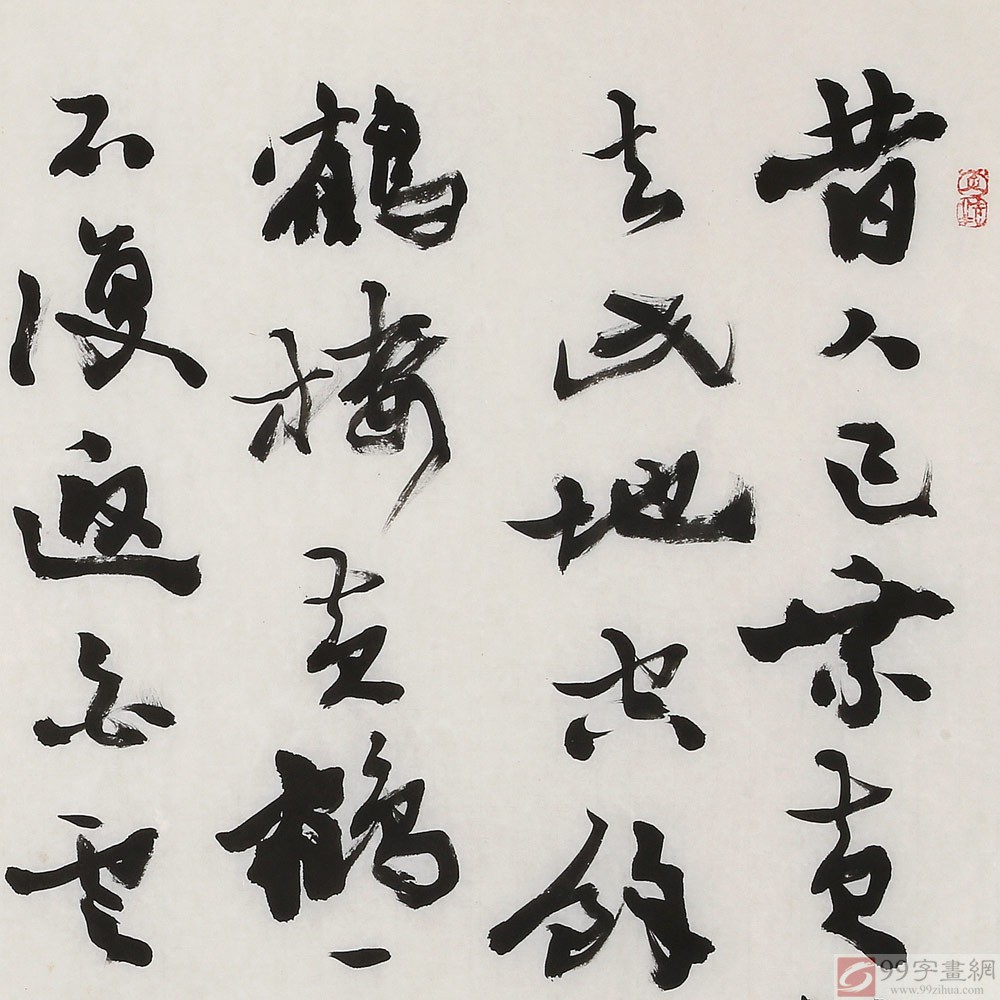 昔人已乘黄
去此地空餘
鶴樓黄鶴一
不復返白雲
99字畫網
www.99zihua.com